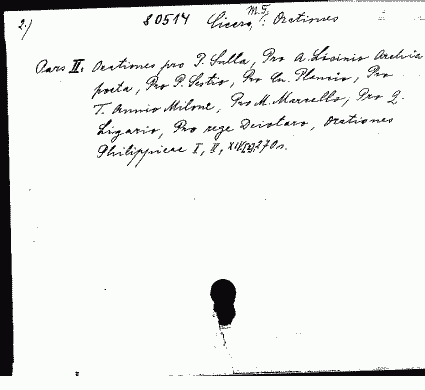 2.) 80514 Cicero, M.T.: Orationes
Pars II: Orationes pro P. Sulla, Pro A. Licinio Archia
poeta, Pro P. Sestio, Pro Cn. Plancio, Pro
T. Annio Milone, Pro M. Marcello, Pro Q.
Ligario, Pro rege Deiotaro, Orationes
Philippicae I, II, XIV. 270 s.